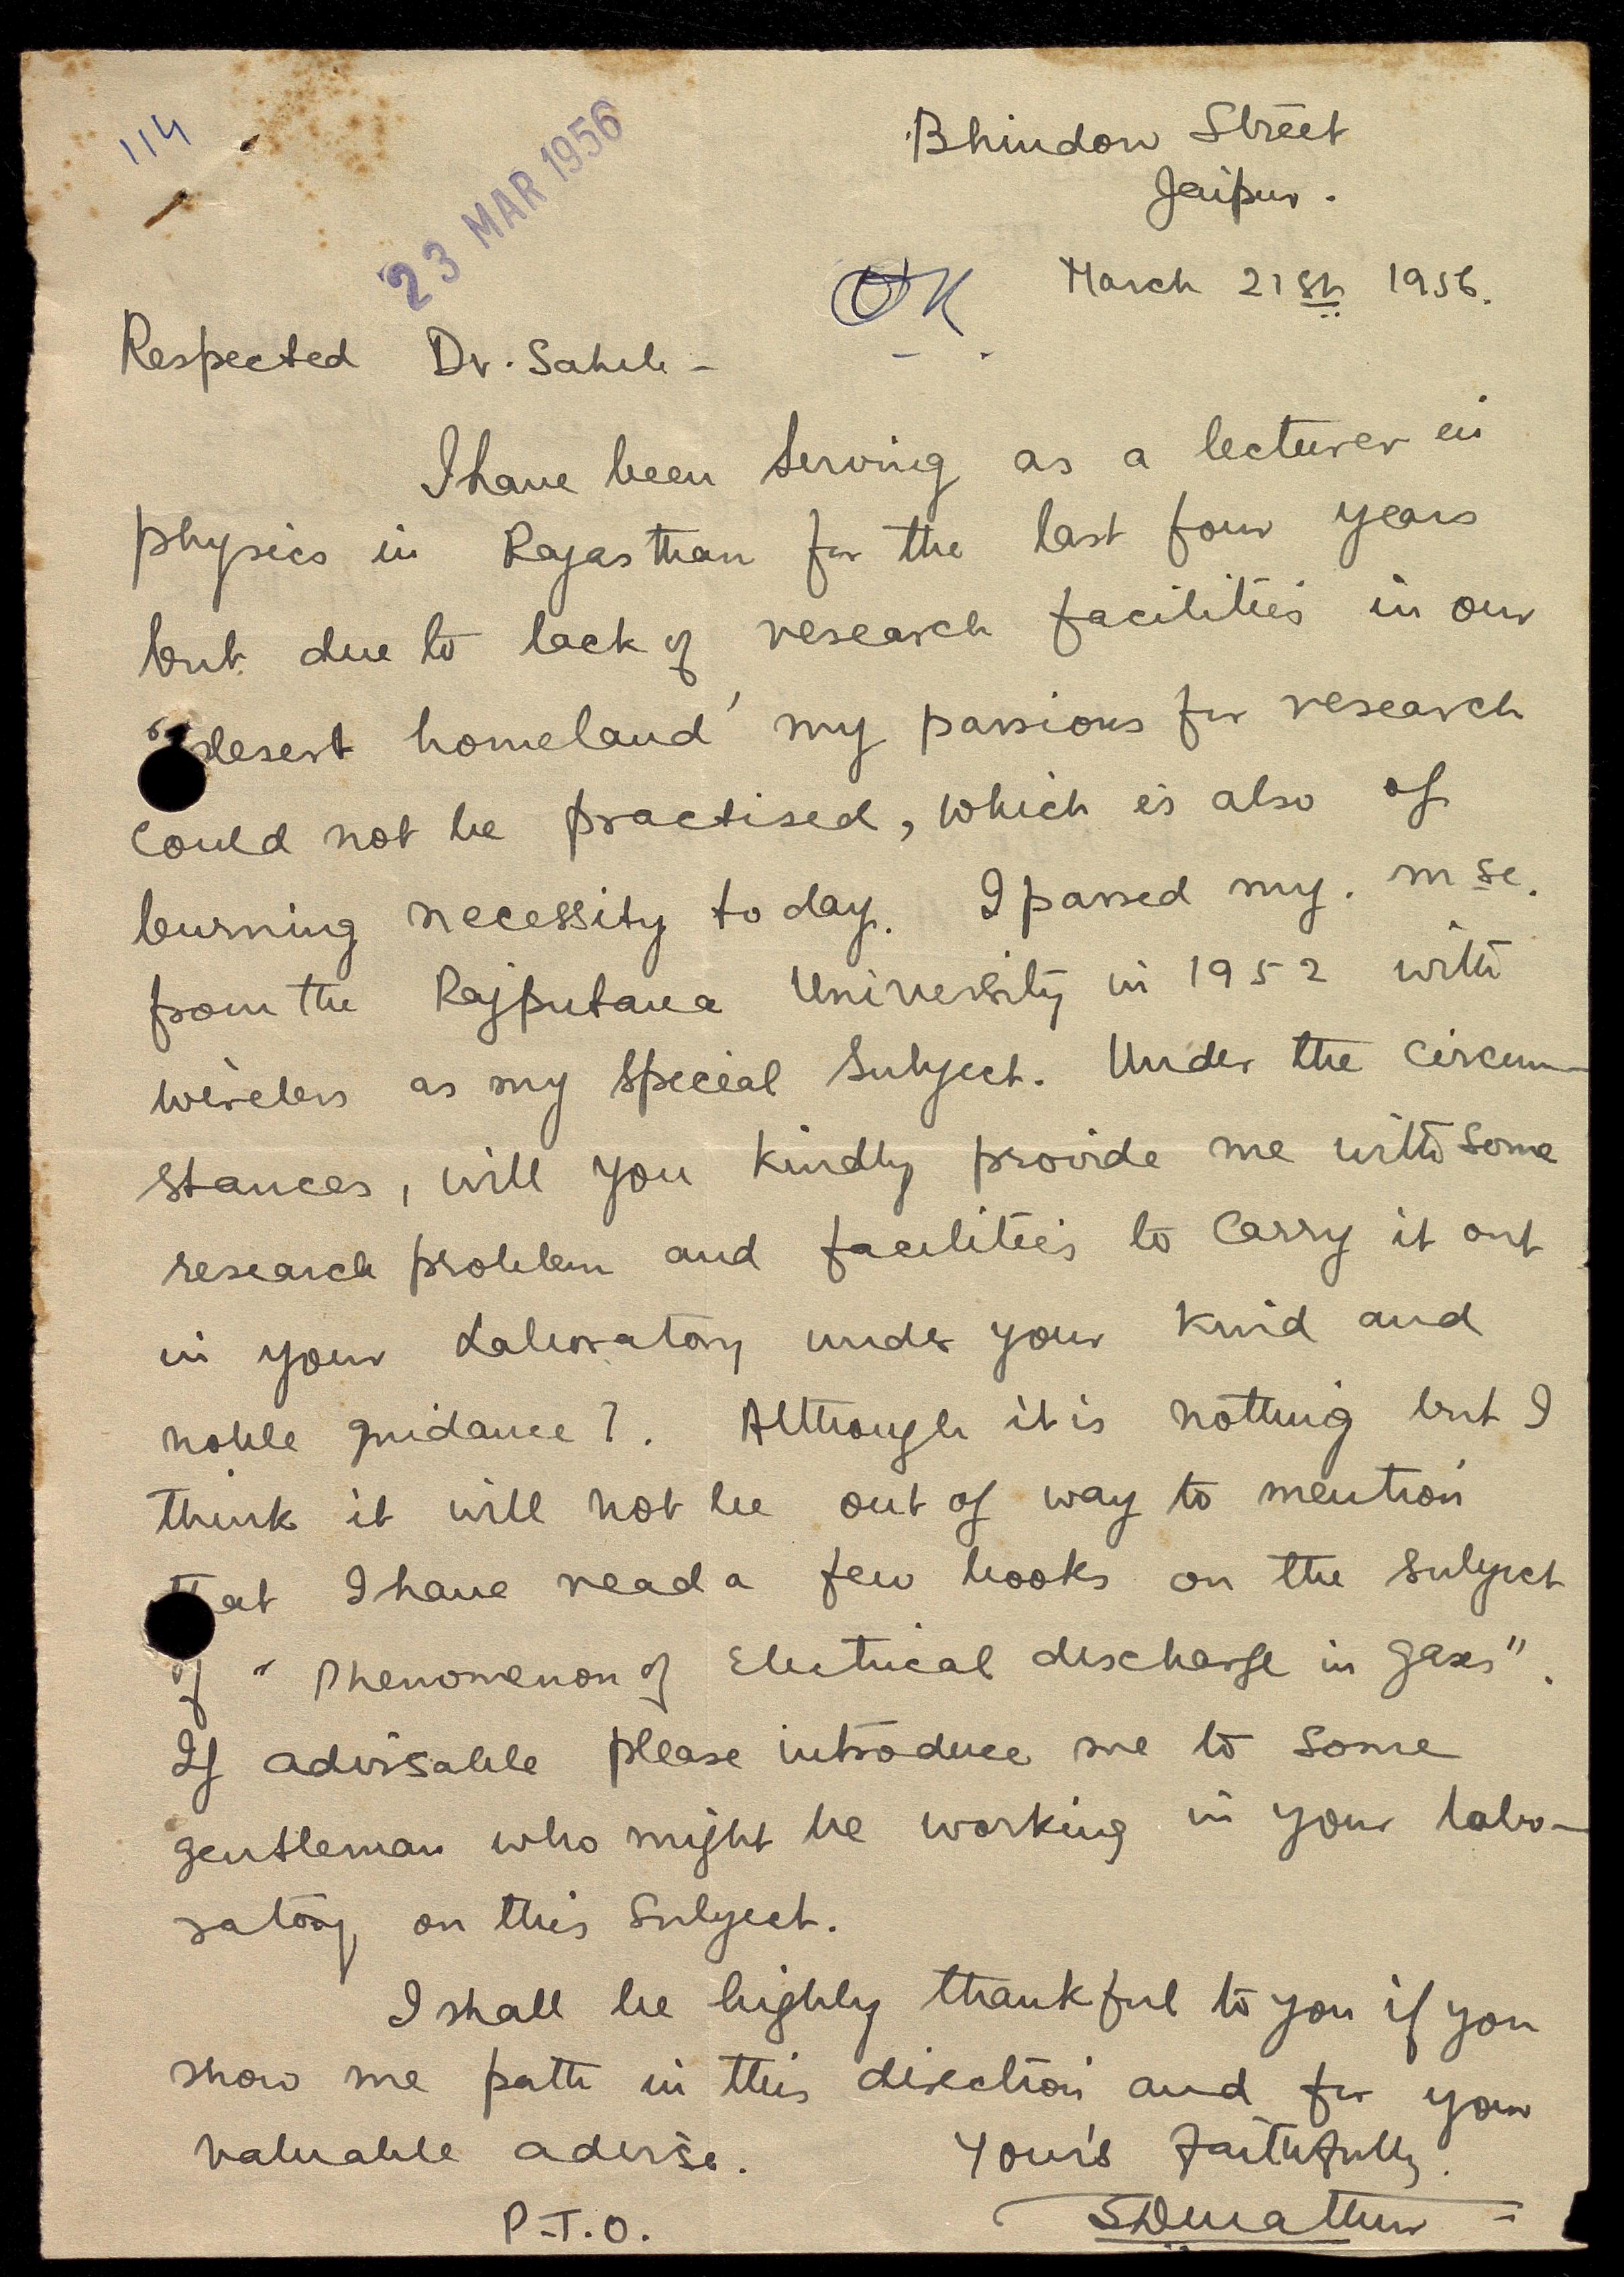 114
23 MAR 1956
Bhindon Street
Jaipur.
OK
March 21st 1956.
Respected Dr. Saheb -
I have been serving as a lecturer in
physics in Rajasthan for the last four years
but due to lack of research facilities in our
"desert homeland' my passions for research
could not be practised, which is also of
burning necessity today. I passed my. MSc.
from the Rajputana University in 1952 with
wireless as my special subject. Under the circum-
stances, will you kindly provide me with some
research problem and facilities to carry it out
in your Laboratory under your kind and
noble guidance?. Although it is nothing but I
think it will not be out of way to mention
that I have read a few books on the subject
of "Phenomenon of Electrical discharge in gases".
If advisable please introduce me to some
gentleman who might be working in your labo-
ratory on this subject.
I shall be highly thankful to you if you
show me path in this direction and for your
valuable advise. Your's faithfully.
P.T.O. SDMathur